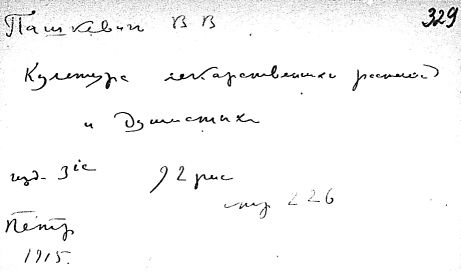 Пашкевич В В 329
Культура лекарственных растений
и Душистых
изд. 3ie 92 рис
стр 226
Петр
1915.